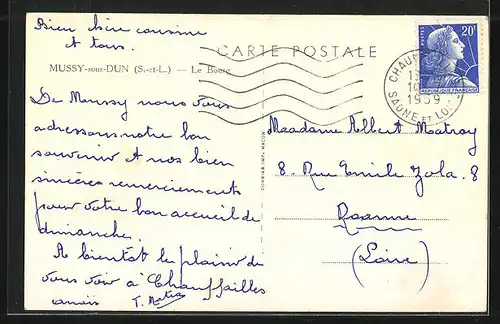 Bien chère cousine
A tous.
CARTE POSTALE
MUSSY-sous-DUN (S.-et-L.) — Le Bourg
De Mussy nous vous
adressons notre bon
souvenir et nos bien
sincères remerciements
pour votre bon accueil de
dimanche.
A bientôt le plaisir de
vous voir à Chauffailles
COMBIER IMP. MACON
POSTES
20F
REPUBLIQUE FRANÇAISE
CHAUF
1959
SAONE ET LOIRE
Madame Albert Matray
8. Rue Emile Zola. 8
Roanne
(Loire)